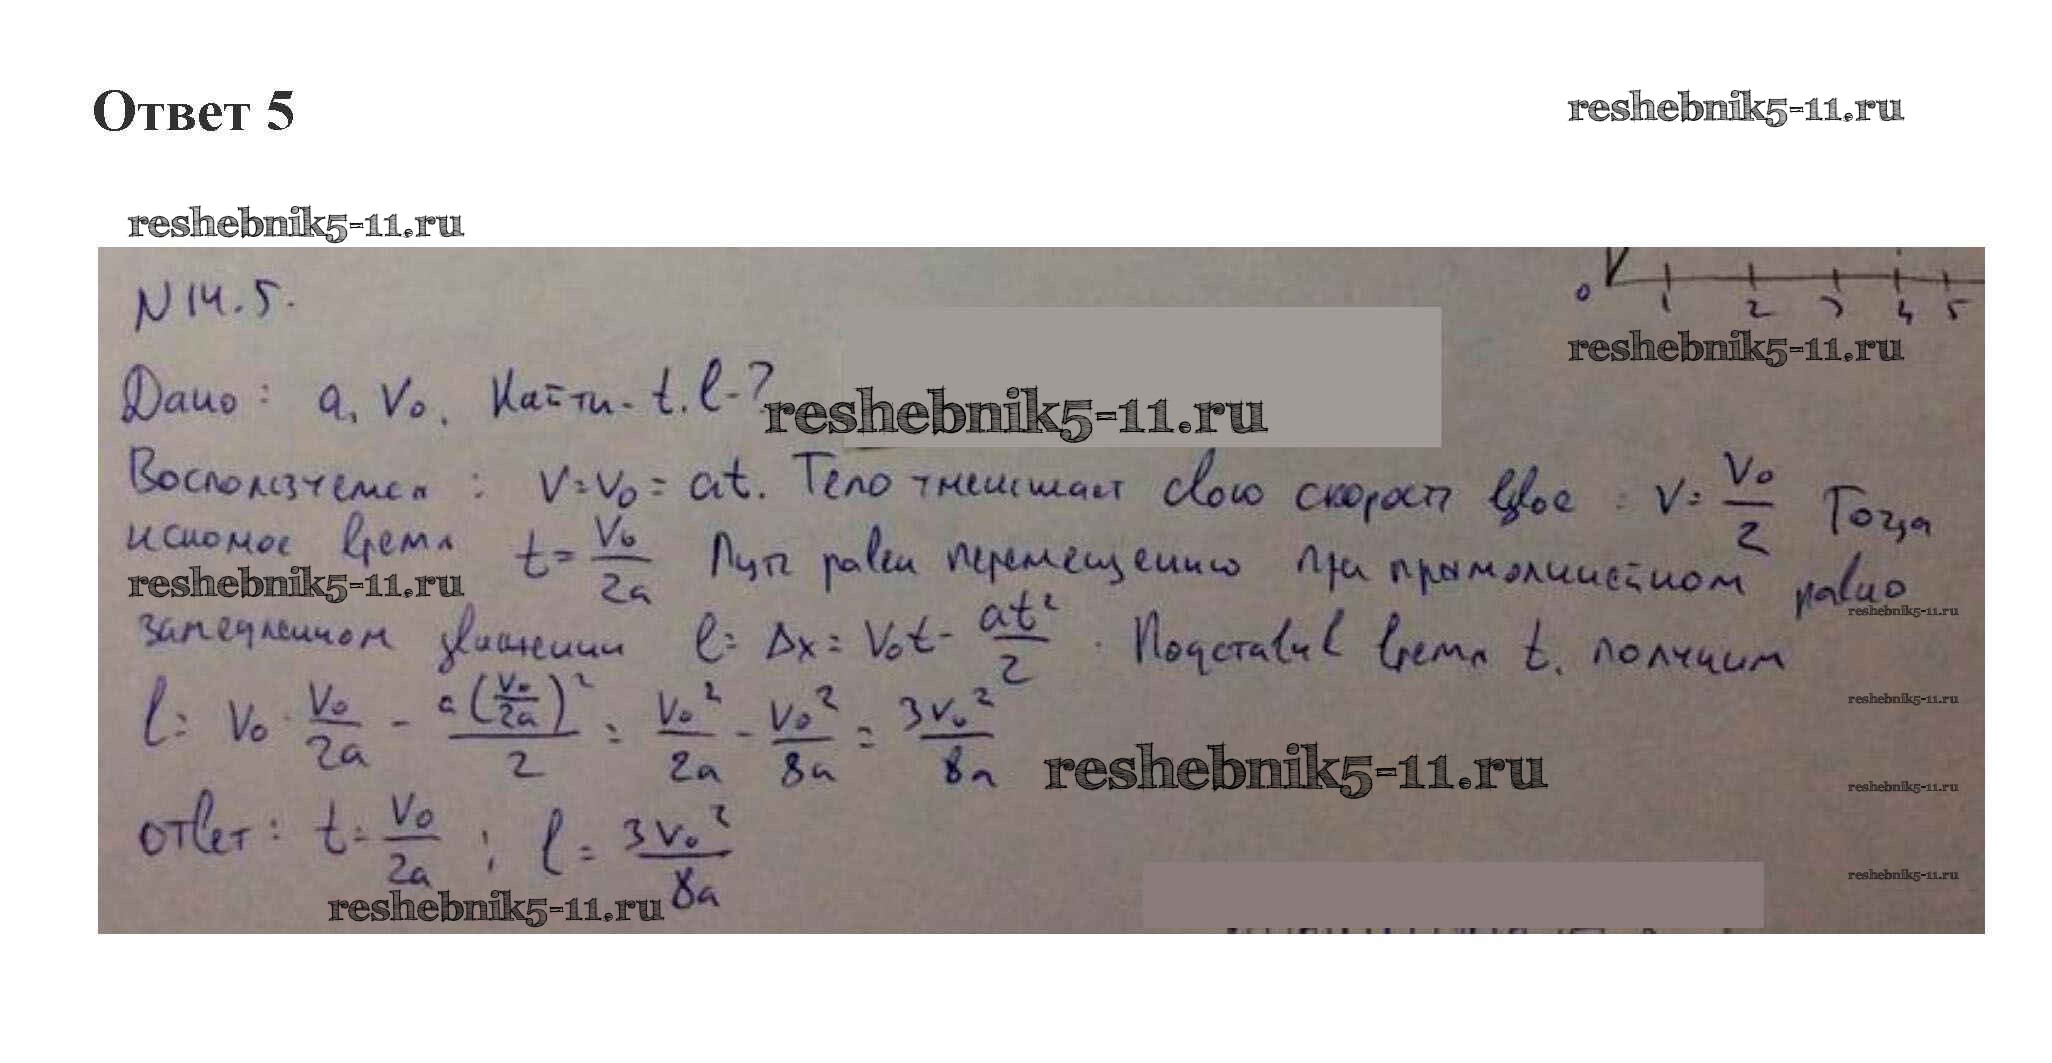 Ответ 5
reshebnik5-11.ru
reshebnik5-11.ru
N 14.5.
0 1 2 3 4 5
reshebnik5-11.ru
Дано: a, V₀. Найти - t, l - ?
reshebnik5-11.ru
Воспользуемся: V = V₀ = at. Тело уменьшает свою скорость вдвое: V = V₀/2 Тогда
искомое время t = V₀/2a Путь равен перемещению при прямолинейном равно
reshebnik5-11.ru
reshebnik5-11.ru
замедленном движении l = Δx = V₀t - at²/2. Подставив время t, получим
reshebnik5-11.ru
l = V₀ · V₀/2a - a(V₀/2a)²/2 = V₀²/2a - V₀²/8a = 3V₀²/8a
reshebnik5-11.ru
reshebnik5-11.ru
ответ: t = V₀/2a ; l = 3V₀²/8a
reshebnik5-11.ru
reshebnik5-11.ru